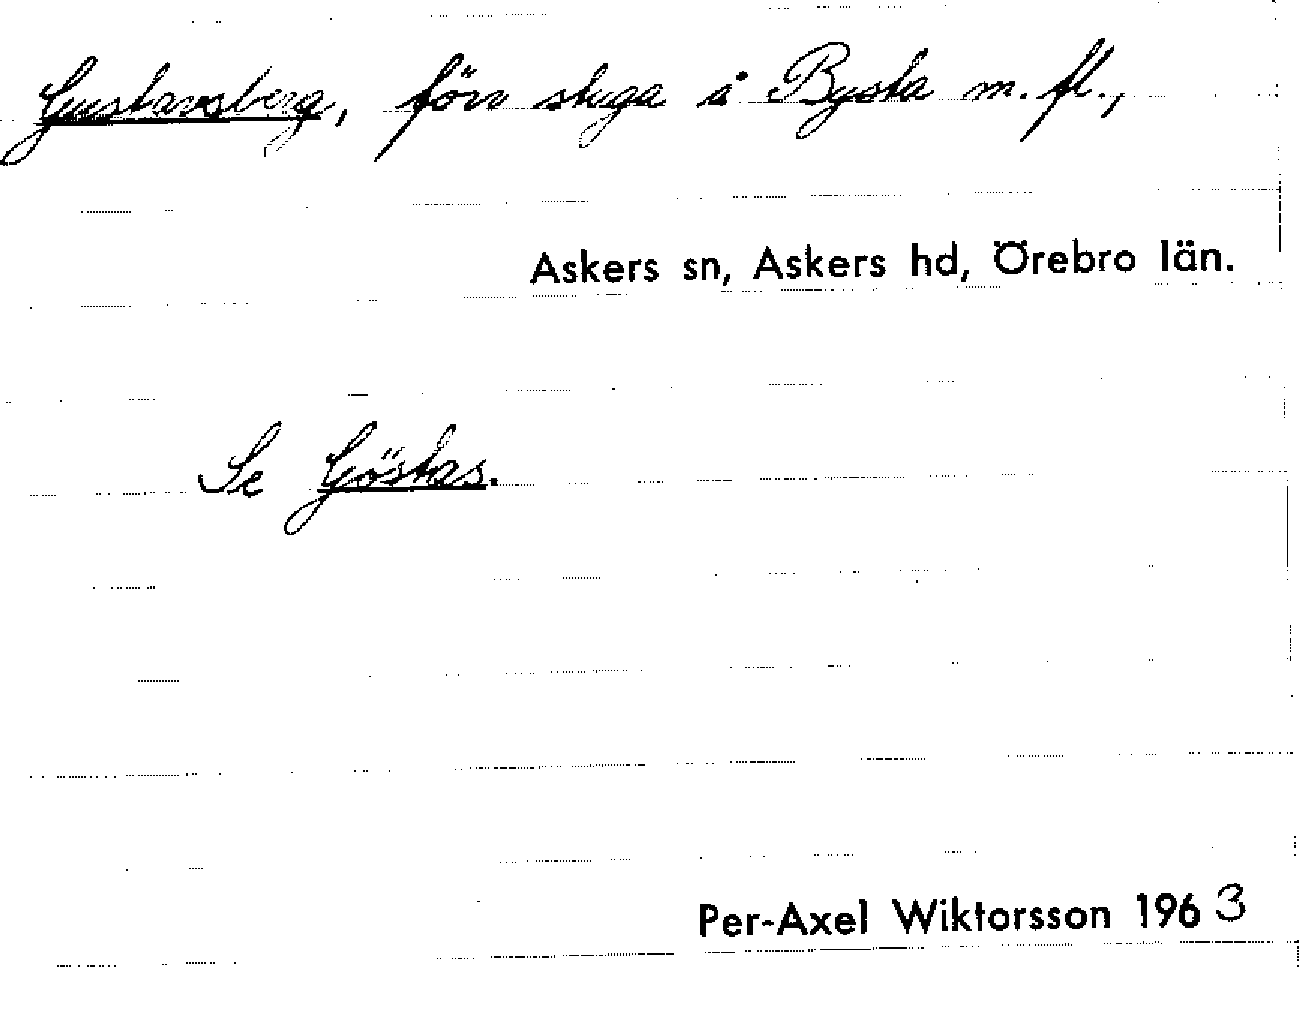 Gustavsberg, förv stuga å Bysta m. fl.,
Askers sn, Askers hd, Örebro län.
Se Göstas.
Per-Axel Wiktorsson 1963